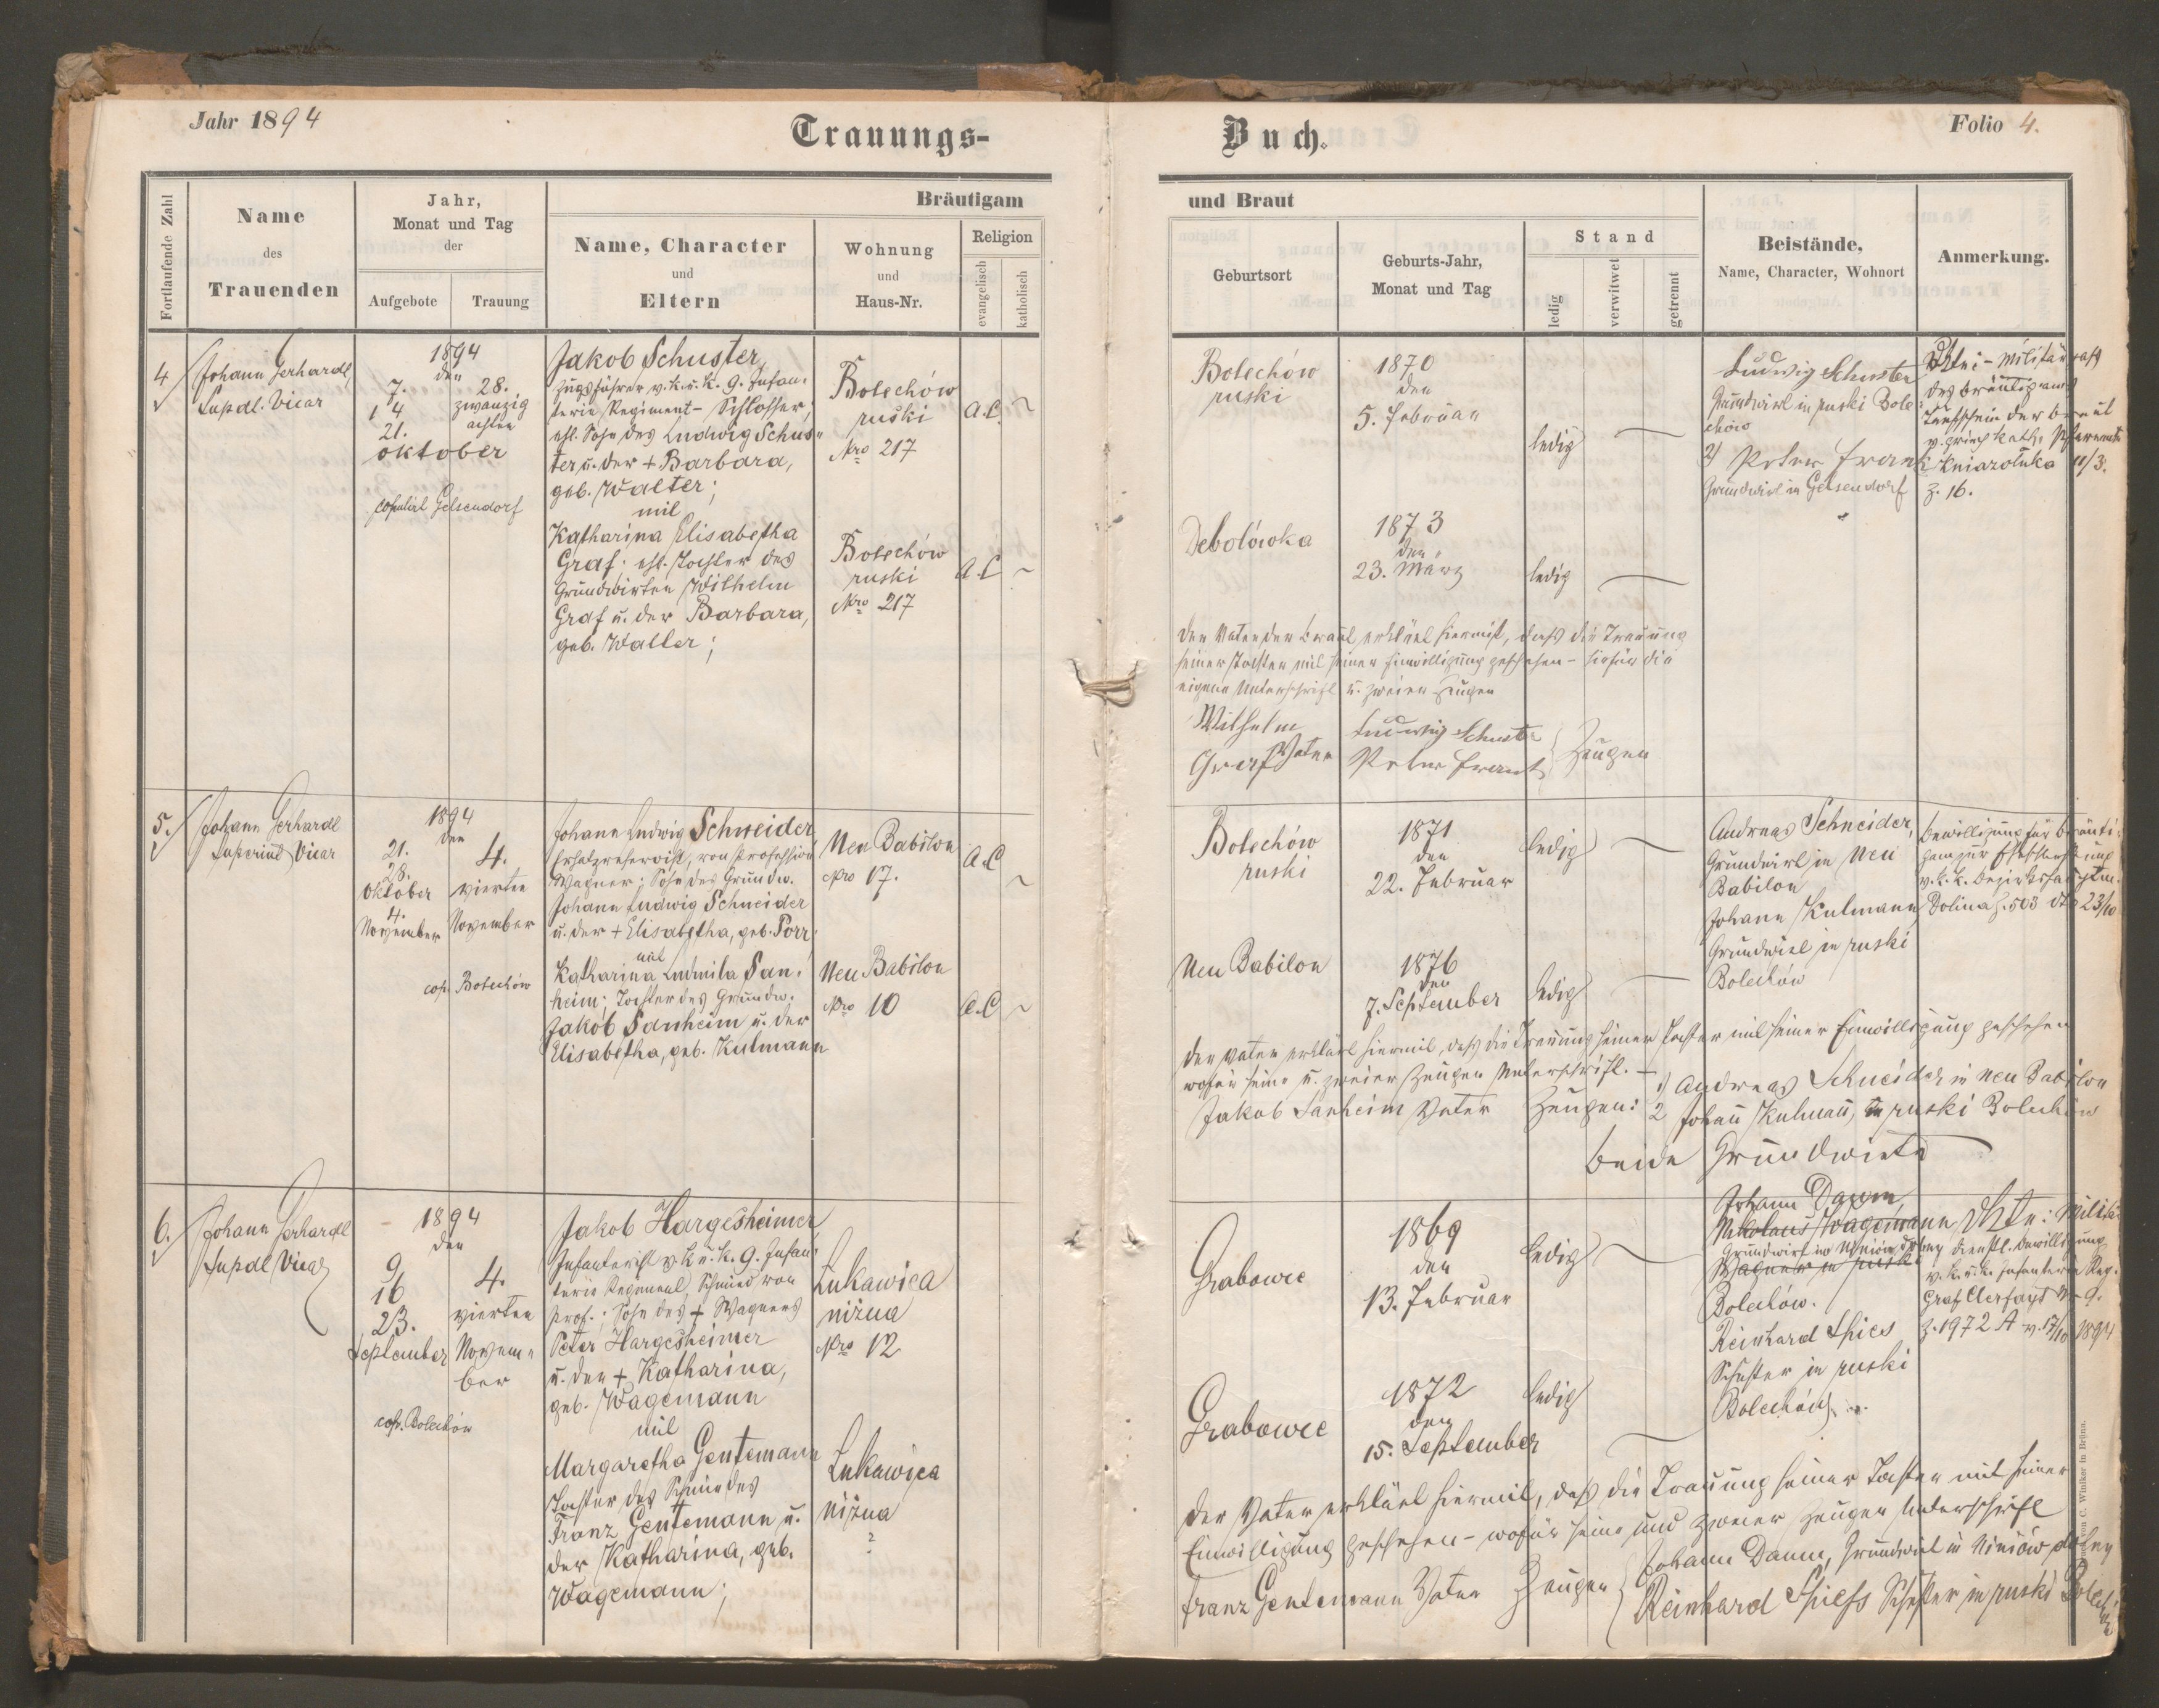 Jahr 1894
Trauungs-
Buch.
Folio 4.
Fortlaufende Zahl
Name
des
Trauenden
Jahr,
Monat und Tag
der
Aufgebote
Trauung
Bräutigam
Name, Character
und
Eltern
Wohnung
und
Haus-Nr.
Religion
evangelisch
katholisch
und Braut
Geburtsort
Geburts-Jahr,
Monat und Tag
Stand
ledig
verwitwet
getrennt
Beistände,
Name, Character, Wohnort
Anmerkung.
4
Johann Gerhardt
Supdl. Vicar
1894
den
7.
14
21.
oktober
28.
zwanzig
achten
copulirt Gelsendorf
Jakob Schuster,
Zugsführer v. k. u. k. 9. Infan-
terie Regiment - Schlosser;
ehl. Sohn des Ludwig Schus-
ter u. der + Barbara,
geb. Walter;
mit
Katharina Elisabetha
Graf; ehl. Tochter des
Grundwirten Wilhelm
Graf u. der Barbara,
geb. Walter;
Bolechów
ruski
Nro 217
A.C.
Bolechów
ruski
Nro 217
A.C
Bolechów
ruski
1870
den
5. Februar
ledig
Ludwig Schuster
Grundwirt in ruski Bole-
chów
2) Peter Frant
Grundwirt in Gelsendorf
des Bräutigams
Taufschein der Braut
v. griech kath. Pfarramte
Kniazoluka 11/3.
z. 16.
Debolówka
1873
den
23. März
ledig
Der Vater der Braut erklärt hiermit, daß die Trauung
seiner Tochter mit seiner Einwilligung geschehen - hiefür die
eigene Unterschrift u. zweier Zeugen
Wilhelm
Graf Vater
Ludwig Schuster
Peter Frant
Zeugen
5.
Johann Gerhardt
Superind Vicar
1894
den
21.
28.
Oktober
4.
November
4.
vierten
November
cop. Bolechów
Johann Ludwig Schneider
Ersatzreservist, von Profession
Wagner; Sohn des Grundw.
Johann Ludwig Schneider
u. der + Elisabetha, geb. Porr
mit
Katharina Ludmila San-
heim; Tochter des Grundw.
Jakob Sanheim u. der
Elisabetha, geb. Kulmann
Neu Babilon
Nro 17.
A.C
Neu Babilon
Nro 10
A.C
Bolechów
ruski
1871
den
22. Februar
ledig
Andreas Schneider,
Grundwirt in Neu
Babilon
Johann Kulmann
Grundwirt in ruski
Bolechów
Bewilligung für Bräuti-
gam zur Eheschließung
v. k. k. Bezirkshauptm.
Dolina Z. 503 dto 23/10
Neu Babilon
1876
den
7. September
ledig
Der Vater erklärt hiermit, daß die Trauung seiner Tochter mit seiner Einwilligung geschehen
wofür seine u. zweier Zeugen Unterschrift. -
Jakob Sanheim Vater
Zeugen:
1) Andreas Schneider in Neu Babilon
2 Johann Kulmann, in ruski Bolechów
beide Grundwirte
6.
Johann Gerhardt
Supdl Vicar
1894
den
9.
16
23.
September
4.
vierten
Novem-
ber
cop. Bolechów
Jakob Hargesheimer,
Infanterist v. k. u. k. 9. Infan-
terie Regiment, Schmied von
Prof.; Sohn des + Wagners
Peter Hargesheimer
u. der + Katharina,
geb. Wagemann
mit
Margaretha Gentemann
Tochter des Schmiedes
Franz Gentemann u.
der Katharina, geb.
Wagemann;
Łukawica
niżna
Nro 12
Łukawica
niżna
?
Grabowce
1869
den
13. Februar
ledig
Johann Daum
Nikolaus Wagemann
Grundwirt in Niniów dolny
Wagner in ruski
Bolechów.
Reinhard Spies
Schuster in ruski
Bolechów
dienstl. Bewilligung
v. k. u. k. Infanterie Reg.
Graf Clerfayt Nr 9.
z. 1972 A v. 17/10 1894
Grabowce
1872
den
15. September
ledig
Der Vater erklärt hiermit, daß die Trauung seiner Tochter mit seiner
Einwilligung geschehen - wofür seine und zweier Zeugen Unterschrift
Franz Gentemann Vater
Zeugen
Johann Daum, Grundwirt in Niniów dolny
Reinhard Spiess Schuster in ruski Bolechów
von C. Winiker in Brünn.